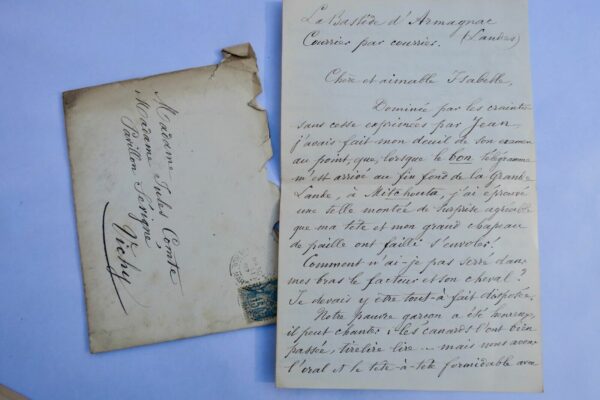 Madame
Madame Jules Comte
Pavillon Sévigné
Vichy
La Bastide d'Armagnac
Courrier par courrier. (Landes)
Chère et aimable Isabelle,
Dominée par les craintes
sans cesse exprimées par Jean,
j'avais fait mon deuil de son examen
au point, que, lorsque le bon télégramme
m'est arrivé au fin fond de la Grande
Lande, à Mitchouta, j'ai éprouvé
une telle montée de surprise agréable
que ma tête et mon grand chapeau
de paille ont failli s'envoler!
Comment n'ai-je pas serré dans
mes bras le facteur et son cheval?
Je devais y être tout-à fait disposée.
Notre pauvre garçon a été heureux,
il peut chanter: les canards l'ont bien
passée, tire lire lire — mais nous avons
l'oral et le tête-à-tête formidable avec